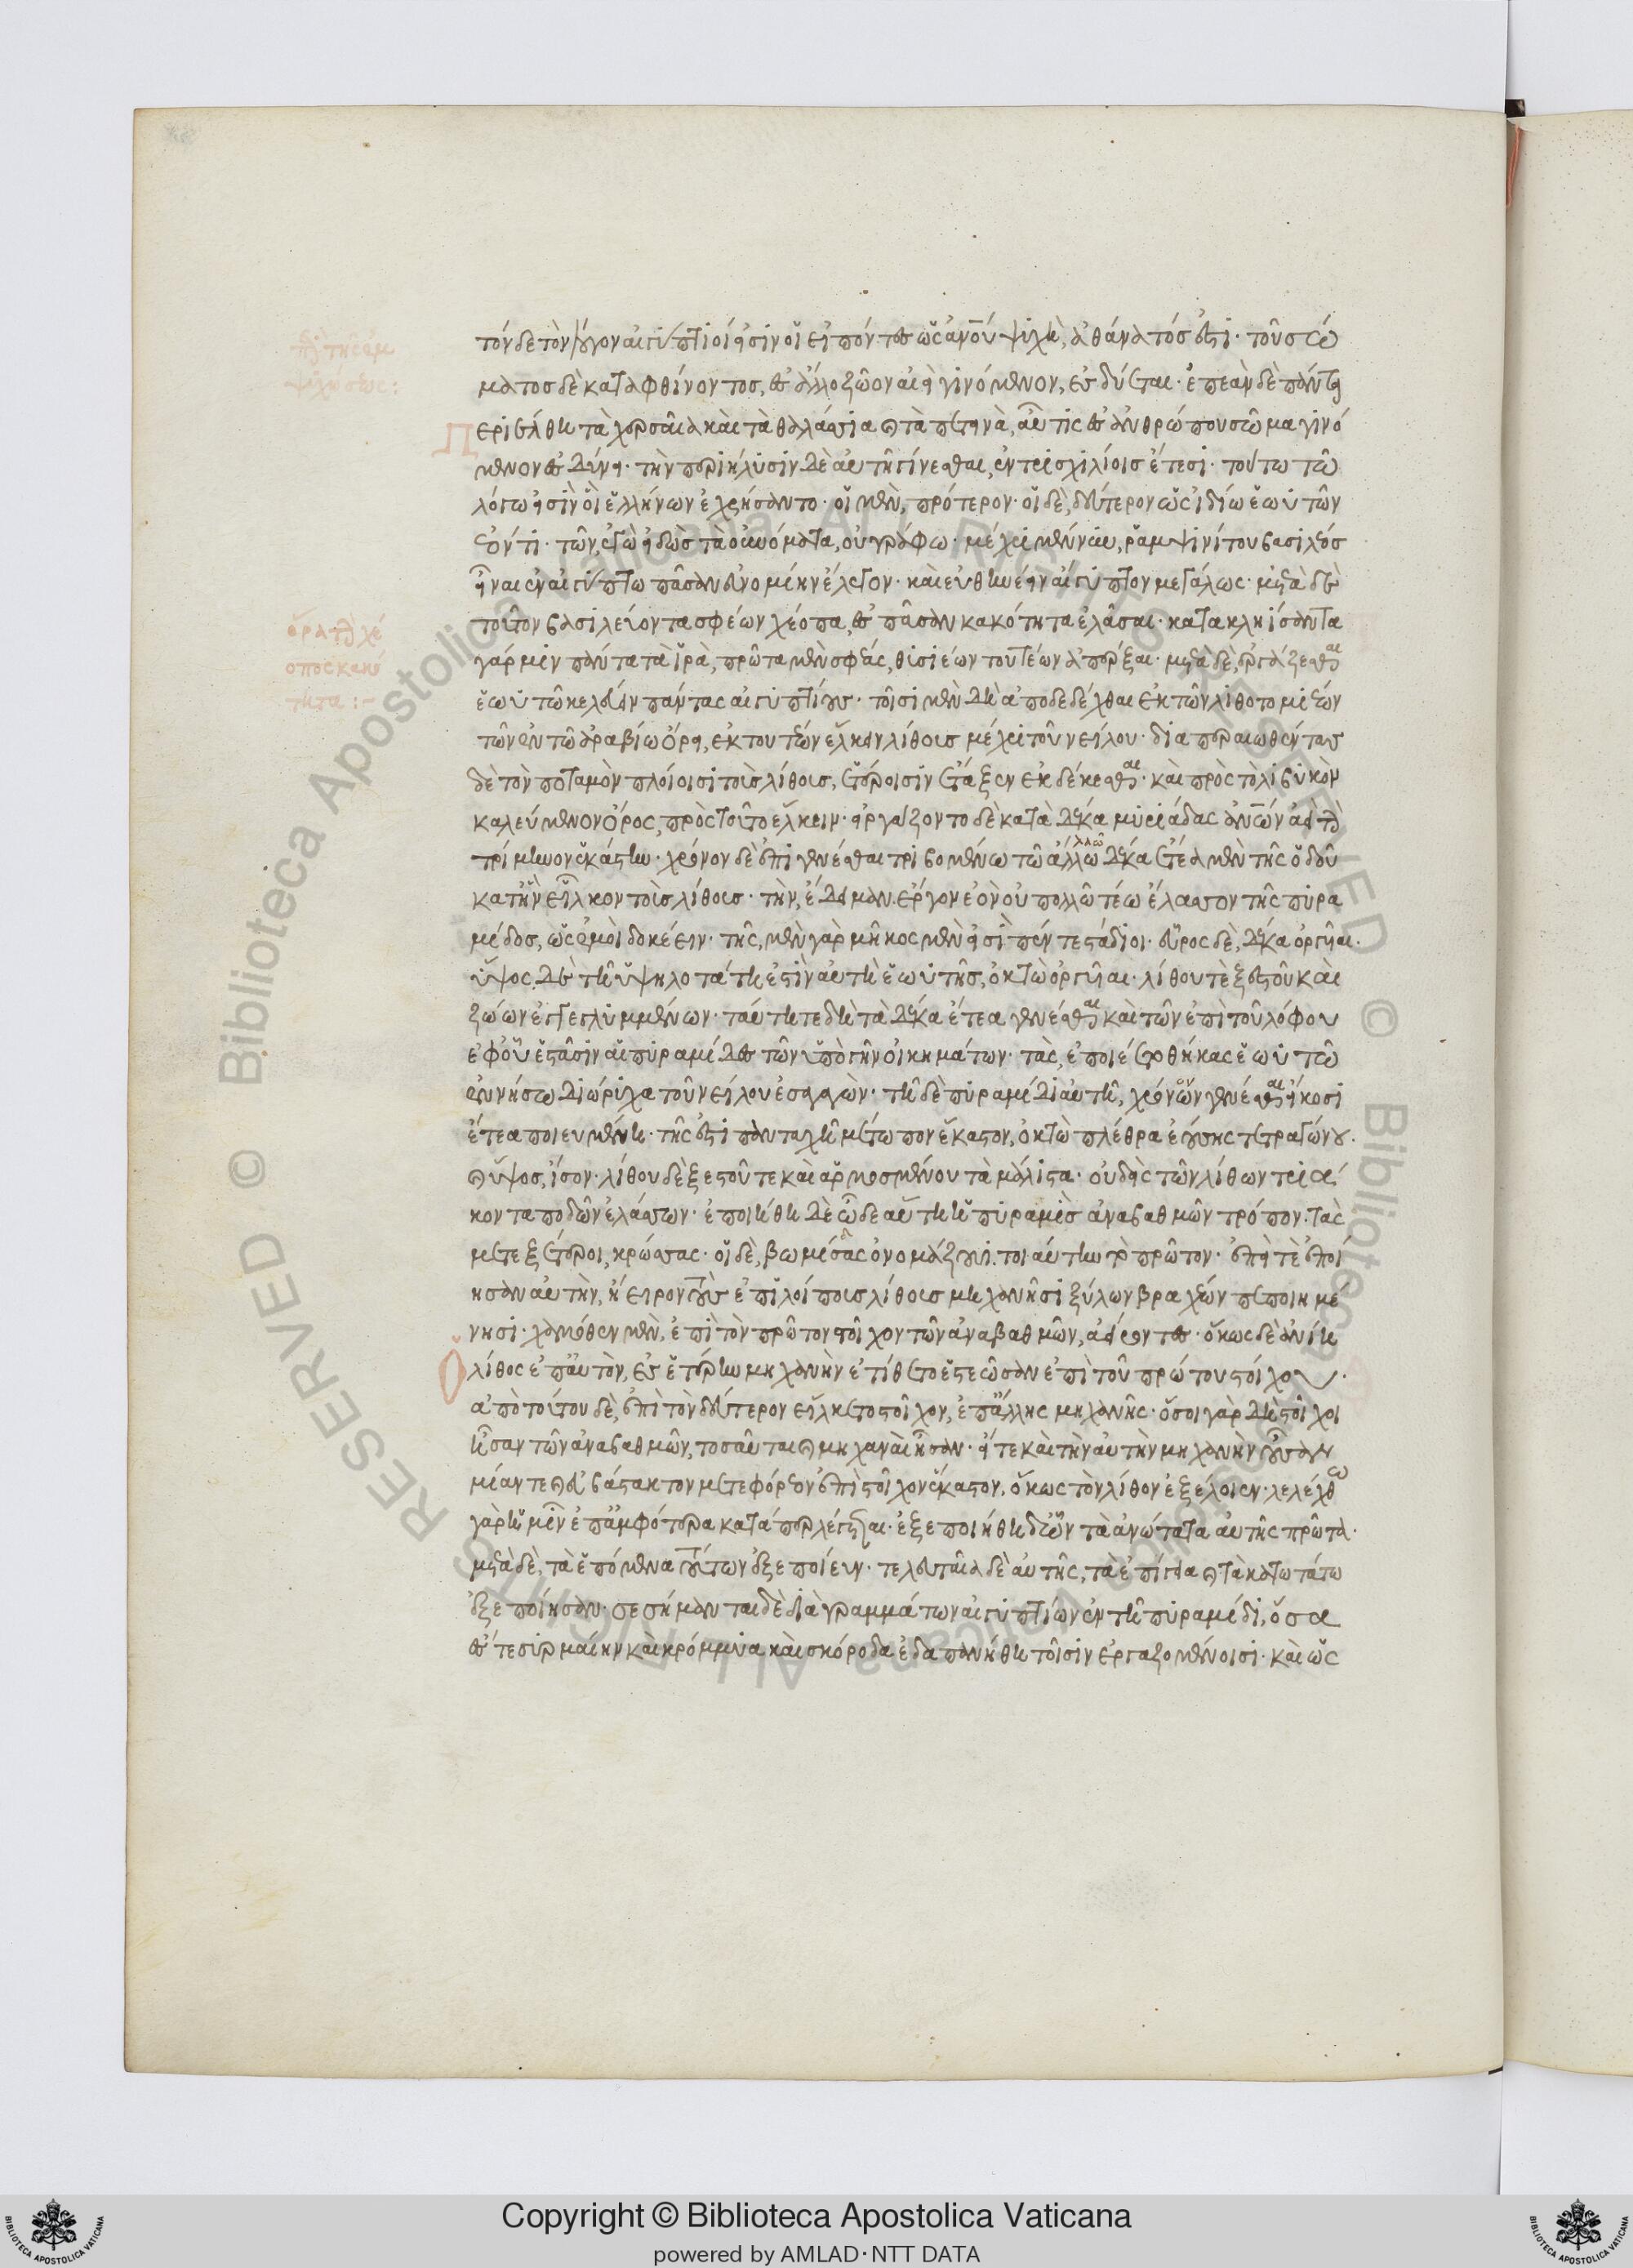 τόνδε τὸν λόγον αἰγύπτιοί εἰσιν οἱ εἰπόντες ὡς ἀνου ψυχὴ, ἀθάνατός ἐστι· τοῦ σώ
ματος δὲ καταφθίνοντος, ἐς ἄλλο ζῶον αἰεὶ γινόμενον, ἐσδύεται· ἐπεὰν δὲ πάντα
περιέλθη τὰ χερσαῖα καὶ τὰ θαλάσσια καὶ τὰ πετεινὰ, αὖτις ἐς ἀνθρώπου σῶμα γινό
μενον ἐσδύνει· τὴν περιήλυσιν δὲ αὐτῆ γίνεσθαι, ἐν τρισχιλίοισ ἔτεσι· τούτω τῶ
λόγω εἰσὶν οἳ ἑλλήνων ἐχρήσαντο· οἱ μὲν, πρότερον· οἱ δὲ, ὕστερον ὡς ἰδίω ἑωυτῶν
ἐόντι· τῶν, ἐγὼ εἰδὼσ τὰ οὐνόματα, οὐ γράφω· μέχρι μέν νυν, ῥαμψινίτου βασιλέοσ
εἶναι ἐν αἰγύπτω πᾶσαν εὐνομίην ἔλεγον· καὶ εὐθηνέειν αἴγυπτον μεγάλως· μετὰ δὲ
τοῦτον βασιλεύοντα σφέων χέοπα, ἐς πᾶσαν κακότητα ἐλάσαι· κατακληίσαντα
γάρ μιν πάντα τὰ ἱρὰ, πρῶτα μὲν σφέας, θυσιέων τουτέων ἀπέρξαι· μετὰ δὲ, ἐργάζεσθαι
ἑωυτῶ κελεύειν πάντας αἰγυπτίους· τοῖσι μὲν δὴ ἀποδεδέχθαι ἐκ τῶν λιθοτομιέων
τῶν ἐν τῶ ἀραβίω ὄρει, ἐκ τουτέων ἕλκειν λίθουσ μέχρι τοῦ νείλου· διαπεραιωθέντας
δὲ τὸν ποταμὸν πλοίοισι τοὺσ λίθουσ, ἑτέροισιν ἔταξεν ἐκδέκεσθαι· καὶ πρὸς τὸ λιβυκὸν
καλεύμενον ὄρος, πρὸς τοῦτο ἕλκειν· ἐργάζοντο δὲ κατὰ δέκα μυριάδας ἀνθρώπων ἀεὶ τὴν
τρίμηνον ἑκάστην· χρόνον δὲ ἐπιγενέσθαι τριβομένω τῶ ἄλλω δέκα ἔτεα μὲν τῆς ὁδοῦ
κατ' ἣν εἷλκον τοὺσ λίθουσ· τὴν, ἔδειμαν ἔργον ἐὸν οὐ πολλῶ τέω ἔλασσον τῆς πυρα
μίδοσ, ὡς ἐμοὶ δοκέειν· τῆς, μὲν γὰρ μῆκος μὲν εἰσὶ πέντε στάδιοι· εὖρος δὲ, δέκα ὀργυιαι·
ὕψος δὲ τῆ ὑψηλοτάτη ἐστὶν αὐτὴ ἑωυτῆσ, ὀκτὼ ὀργυιαι· λίθου τὲ ξεστοῦ καὶ
ζώων ἐγγεγλυμμένων· ταύτη τε δὴ τὰ δέκα ἔτεα γενέσθαι καὶ τῶν ἐπὶ τοῦ λόφου
ἐφ' οὗ ἑστᾶσιν αἱ πυραμίδες τῶν ὑπὸ γῆν οἰκημάτων· τὰς, ἐποιέετο θήκας ἑωυτῶ
ἐν νήσω διώρυχα τοῦ νείλου ἐσαγαγών· τῆ δὲ πυραμίδι αὐτῆ, χρόνον γενέσθαι εἴκοσι
ἔτεα ποιευμένη· τῆς ἐστι πανταχῆ μέτωπον ἕκαστον, ὀκτὼ πλέθρα ἐούσης τετραγώνου·
καὶ ὕψοσ, ἴσον· λίθου δὲ ξεστοῦ τε καὶ ἁρμοσμένου τὰ μάλιστα· οὐδεὶς τῶν λίθων τριή
κοντα ποδῶν ἐλάσσων· ἐποιήθη δὲ ὧδε αὕτη ἡ πυραμὶσ ἀναβαθμῶν τρόπον· τὰς
μετεξέτεροι, κρόσσας· οἱ δὲ, βωμίδας ὀνομάζουσι· τοιαύτην τὸ πρῶτον· ἐπεί τε ἐποί
ησαν αὐτὴν, ἤειρον τοὺς ἐπιλοίπουσ λίθουσ μηχανῆσι ξύλων βραχέων πεποιημέ
νησι· χαμόθεν μὲν, ἐπὶ τὸν πρῶτον στοῖχον τῶν ἀναβαθμῶν, ἀείροντες· ὅκως δὲ ἀνίη
ὁ λίθος ἐπ' αὐτὸν, ἐς ἑτέρην μηχανὴν ἐτίθετο ἑστεῶσαν ἐπὶ τοῦ πρώτου στοίχου·
ἀπὸ τούτου δὲ, ἐπὶ τὸν δεύτερον εἵλκετο στοῖχον, ἐπ' ἄλλης μηχανῆς· ὅσοι γὰρ δὴ στοῖχοι
ἦσαν τῶν ἀναβαθμῶν, τοσαῦται καὶ μηχαναὶ ἦσαν· εἴτε καὶ τὴν αὐτὴν μηχανὴν ἐοῦσαν
μίαν τε καὶ εὐβάστακτον μετεφόρεον ἐπὶ στοῖχον ἕκαστον, ὅκως τὸν λίθον ἐξέλοιεν· λελέχθω
γὰρ ἡμῖν ἐπ' ἀμφότερα κατάπερ λέγεται· ἐξεποιήθη δ' ὦν τὰ ἀνώτατα αὐτῆς πρῶτα·
μετὰ δὲ, τὰ ἑπόμενα τούτων ἐξεποίευν· τελευταῖα δὲ αὐτῆς, τὰ ἐπίγαια καὶ τὰ κατωτάτω
ἐξεποίησαν· σεσήμανται δὲ διὰ γραμμάτων αἰγυπτίων ἐν τῆ πυραμίδι, ὅσα
ἔς τε συρμαίην καὶ κρόμμυα καὶ σκόροδα ἐδαπανήθη τοῖσιν ἐργαζομένοισι· καὶ ὡς
ὅρα τὴν χέ
οπος κακό
τητα :-
Copyright © Biblioteca Apostolica Vaticana
powered by AMLAD·NTT DATA